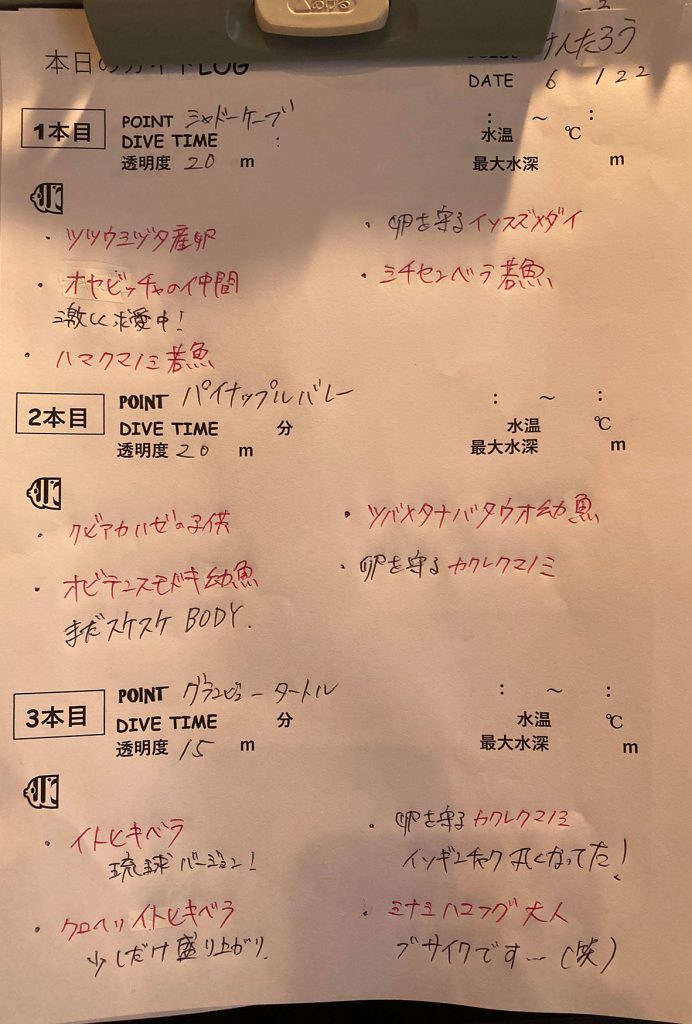 本日のガイドLOG
けんたろう
DATE 6 / 22
1本目
POINT シャドーケーブ
DIVE TIME :
透明度 20 m
: ～ :
水温 ℃
最大水深 m
・ツツウミヅタ産卵
・オヤビッチャの仲間
激しく求愛中!
・ハマクマノミ若魚
・卵を守るイソスズメダイ
・ミチセンベラ若魚
2本目
POINT パイナップルバレー
DIVE TIME 分
透明度 20 m
: ～ :
水温 ℃
最大水深 m
・クビアカハゼの子供
・オビテンスモドキ幼魚
まだスケスケBODY.
・ツバメタナバタウオ幼魚
・卵を守るカクレクマノミ
3本目
POINT グランビュータートル
DIVE TIME 分
透明度 15 m
: ～ :
水温 ℃
最大水深 m
・イトヒキベラ
琉球バージョン!
・クロヘリイトヒキベラ
少しだけ盛り上がり.
・卵を守るカクレクマノミ
イソギンチャク丸くなってた!
・ミナミハコフグ大人
ブサイクです…(笑)